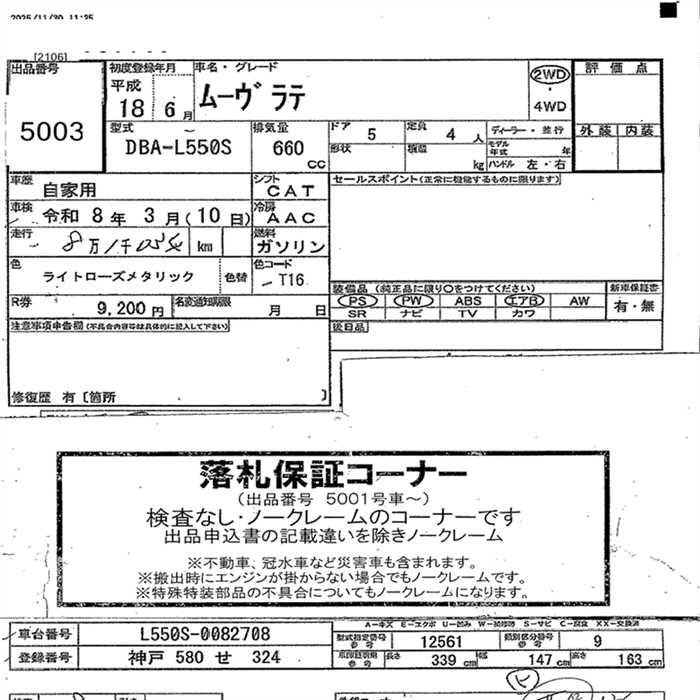 2025/11/30 11:25
[2106]
出品番号 初度登録年月 車名・グレード 2WD 評価点
平成 18 6月 ムーヴ ラテ 4WD
5003 型式 排気量 ドア 5 定員 4人 ディーラー・並行 外装 内装
DBA-L550S 660 CC 形状 積載 kg モデル年式 年
ハンドル 左・右
車歴 自家用 シフト CAT セールスポイント(正常に機能するものに限ります)
車検 令和 8年 3月(10日) 冷房 AAC
走行 km 燃料 ガソリン
色 ライトローズメタリック 色替 色コード T16
装備品 (純正品に限り○をつけてください) 新車保証書
R券 9,200円 名変通知期限 月 日 PS PW ABS エアB AW 有・無
SR ナビ TV カワ
注意事項申告欄(不具合内容等は具体的に記入して下さい) 後日品
修復歴 有〔箇所 〕
落札保証コーナー
(出品番号 5001号車〜)
検査なし・ノークレームのコーナーです
出品申込書の記載違いを除きノークレーム
※不動車、冠水車など災害車も含まれます。
※搬出時にエンジンが掛からない場合でもノークレームです。
※特殊特装部品の不具合についてもノークレームになります。
A-キズ E-エクボ U-凹み W-補修跡 S-サビ C-腐食 XX-交換済
車台番号 L550S-0082708 型式指定番号 参考 12561 類別区分番号 参考 9
登録番号 神戸 580 せ 324 参考 長さ 339cm 幅 147cm 高さ 163cm